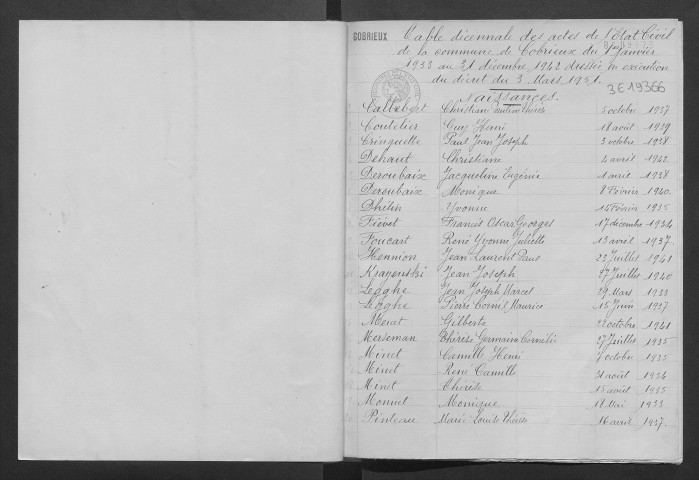 COBRIEUX
Table décennale des actes de l'Etat Civil
de la commune de Cobrieux du 1er Janvier
1933 au 31 décembre 1942 dressée en exécution
du décret du 3 Mars 1951.
3E19366
Naissances.
Callebert Christian Thérèse 5 octobre 1937
Coutelier Guy Henri 18 août 1939
Crinquette Paul Jean Joseph 3 octobre 1938
Dehaut Christiane 4 avril 1942
Deroubaix Jacqueline Eugénie 1 avril 1938
Deroubaix Monique 8 Février 1940
Dhélin Yvonne 14 Février 1935
Fiévet Francis Oscar Georges 17 décembre 1934
Foucart René Yvonne Juliette 13 avril 1937.
Hennion Jean Laurent Paul 23 Juillet 1941
Jean Joseph 27 Juillet 1940
Leghe Jean Joseph Marcel 29 Mars 1933
Leghe Pierre Cornil Maurice 15 Juin 1937
Gilberte 22 octobre 1941
Merseman Thérèse Germaine Cornélie 27 Juillet 1935
Minet Camille Henri octobre 1935
Minet René Camille 31 août 1934
Minet Thérèse 15 août 1935
Monnet Monique 18 Mai 1933
Pinteau Marie Louise Thérèse 16 avril 1937.